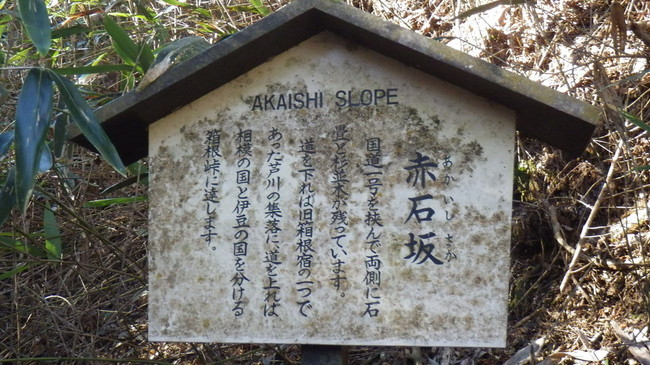 AKAISHI SLOPE
あかいしさか
赤石坂
国道一号を挟んで両側に石
畳と杉並木が残っています。
道を下れば旧箱根宿の一つで
あった芦川の集落に、道を上れば
相模の国と伊豆の国を分ける
箱根峠に達します。